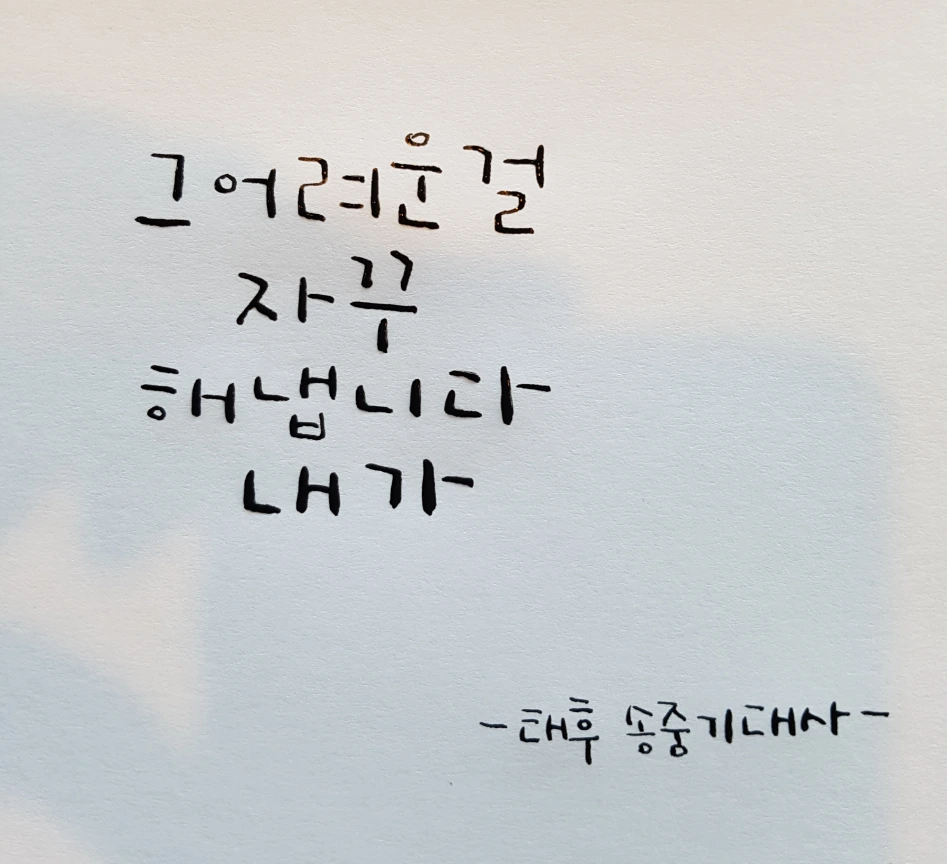 그 어려운 걸
자꾸
해냅니다
내가
-태후 송중기대사-